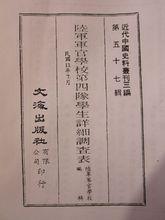 近代中國史料叢刊三編
第五十七輯
陸軍軍官學校第四隊學生詳細調查表
民國四年十月
陸軍軍官學校 編
文海出版社
有限公司
印行